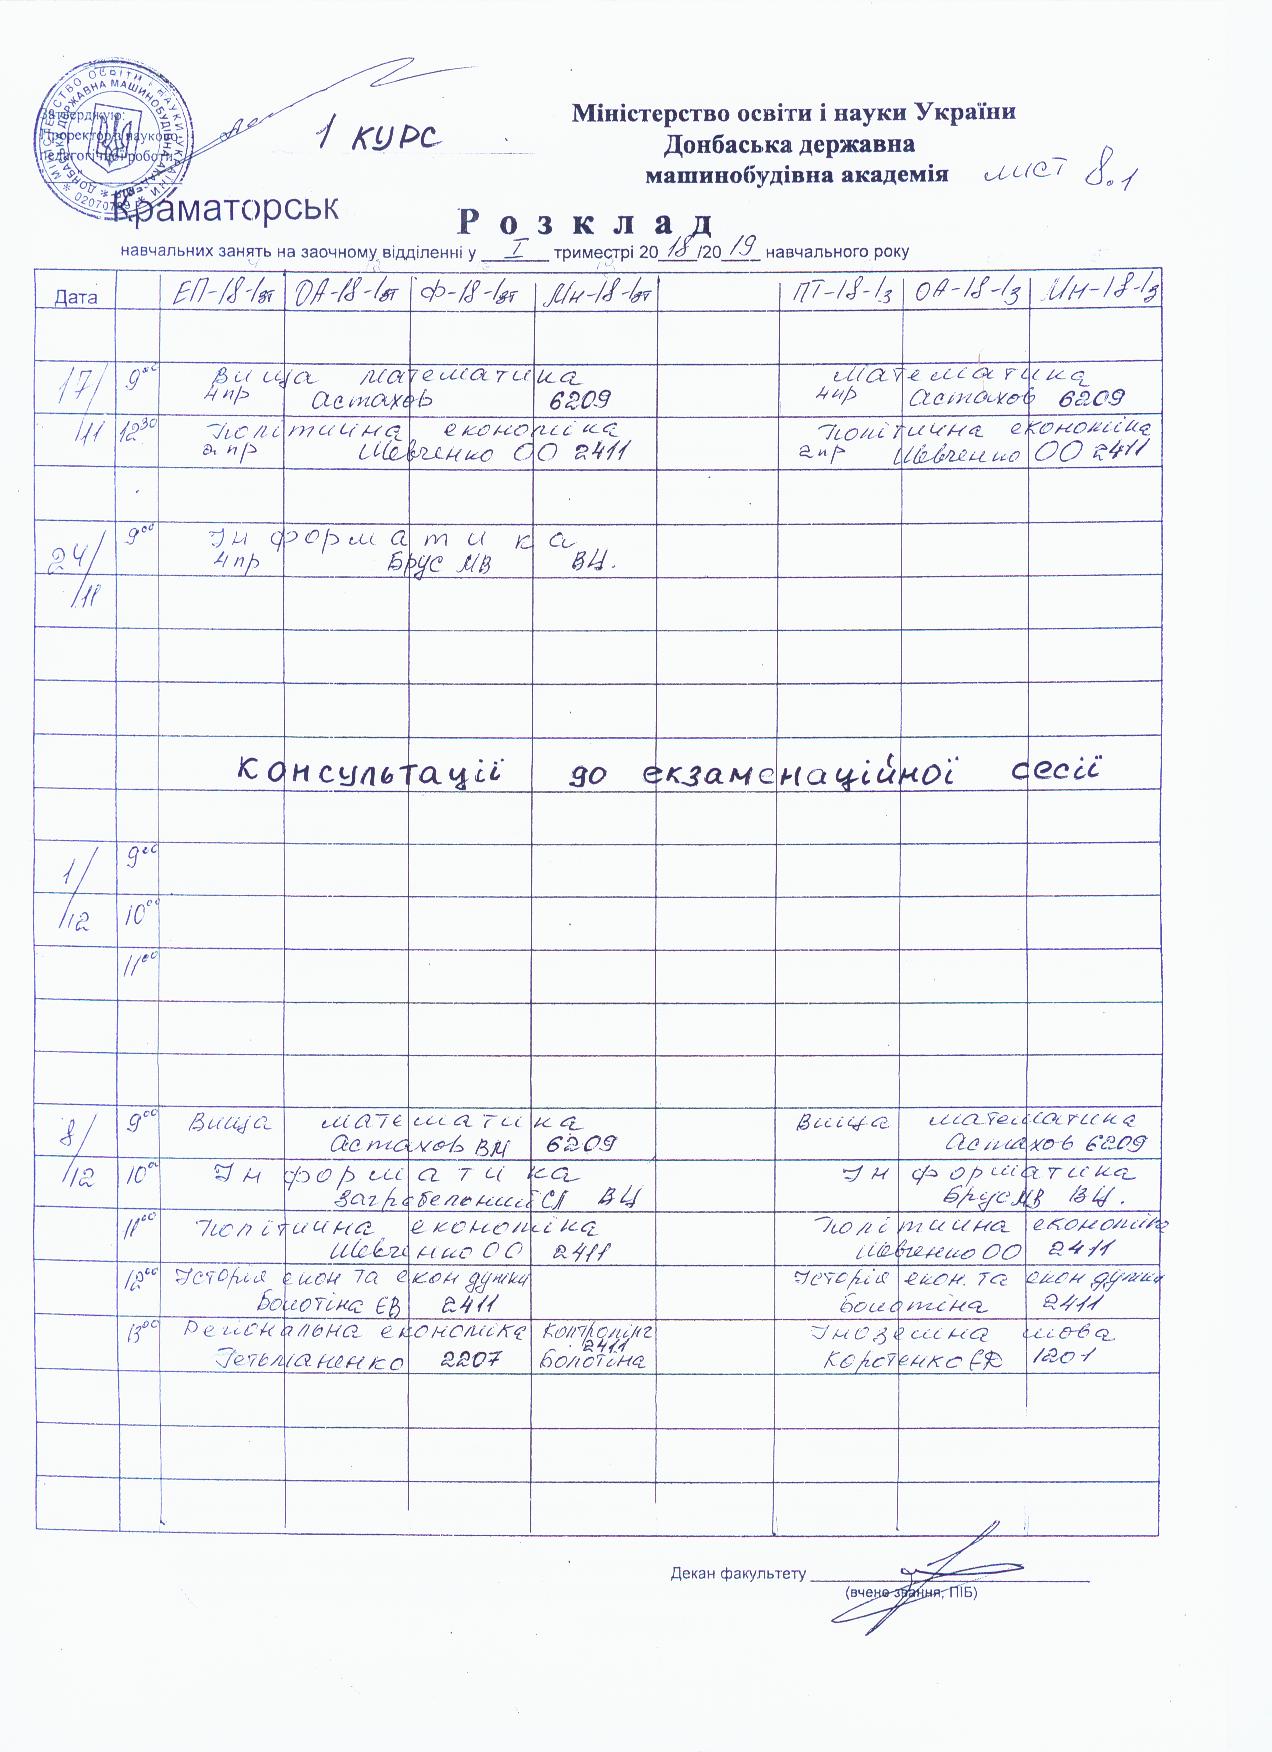 МІНІСТЕРСТВО ОСВІТИ І НАУКИ УКРАЇНИ
ДОНБАСЬКА ДЕРЖАВНА МАШИНОБУДІВНА АКАДЕМІЯ
02070789
Затверджую:
Проректор з науково-
педагогічної роботи
1 курс
Міністерство освіти і науки України
Донбаська державна
машинобудівна академія
лист 8.1
Краматорськ
Розклад
навчальних занять на заочному відділенні у I триместрі 2018/2019 навчального року
Дата ЕП-18-1зт ОА-18-1зт Ф-18-1зт Мн-18-1зт ПТ-18-1з ОА-18-1з Мн-18-1з
17/11 9⁰⁰ Вища математика Математика
4пр Астахов 6209 4пр Астахов 6209
12³⁰ Політична економіка Політична економіка
2 пр Шевченко ОО 2411 2пр Шевченко ОО 2411
24/11 9⁰⁰ Інформатика
4пр Брус МВ ВЦ.
Консультації до екзаменаційної сесії
1/12 9⁰⁰
10⁰⁰
11⁰⁰
8/12 9⁰⁰ Вища математика Вища математика
Астахов ВМ 6209 Астахов 6209
10⁰⁰ Інформатика Інформатика
Загребельний СЛ ВЦ Брус МВ ВЦ.
11⁰⁰ Політична економіка Політична економіка
Шевченко ОО 2411 Шевченко ОО 2411
12⁰⁰ Історія екон та екон думки Історія екон. та екон думки
Болотіна ЄВ 2411 Болотіна 2411
13⁰⁰ Регіональна економіка Контролінг Іноземна мова
2411
Гетьманенко 2207 Болотіна Коротенко ЄД 1201
Декан факультету
(вчене звання, ПІБ)